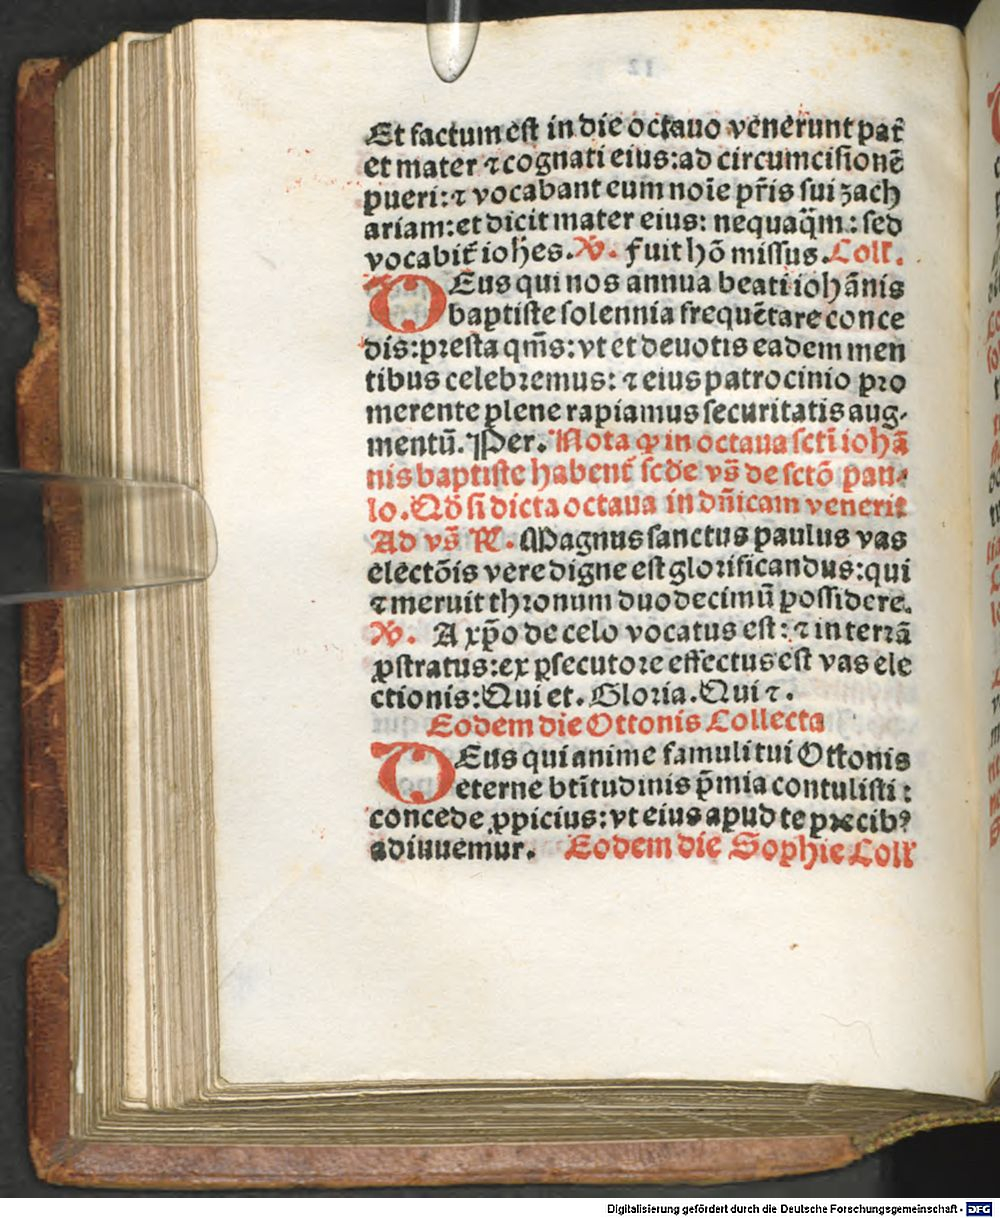 Et factum est in die octauo venerunt pat̄
et mater ⁊ cognati eius: ad circumcisionē
pueri: ⁊ vocabant eum noīe pr̄is sui zach
ariam: et dicit mater eius: nequaq̄m: sed
vocabit̄ iohes. V. Fuit hō missus. Coll.
DEus qui nos annua beati iohānis
baptiste solennia frequētare conce
dis: presta qm̄s: vt et deuotis eadem men
tibus celebremus: ⁊ eius patrocinio pro
merente plene rapiamus securitatis aug-
mentū. Per. Nota ꝙ in octaua sct̄i iohā
nis baptiste habent̄ scd̄e vs̄ de sctō pau-
lo. Qd̄ si dicta octaua in dn̄icam venerit
Ad vs̄ R. Magnus sanctus paulus vas
electōis vere digne est glorificandus: qui
⁊ meruit thronum duodecimū possidere.
V. A xp̄o de celo vocatus est: ⁊ in terrā
ꝓstratus: ex ꝑsecutore effectus est vas ele
ctionis: Qui et. Gloria. Qui ⁊.
Eodem die Ottonis Collecta
DEus qui anime famuli tui Ottonis
eterne btītudinis p̄mia contulisti:
concede ꝓpicius: vt eius apud te precibꝰ
adiuuemur. Eodem die Sophie Coll
Digitalisierung gefördert durch die Deutsche Forschungsgemeinschaft - DFG